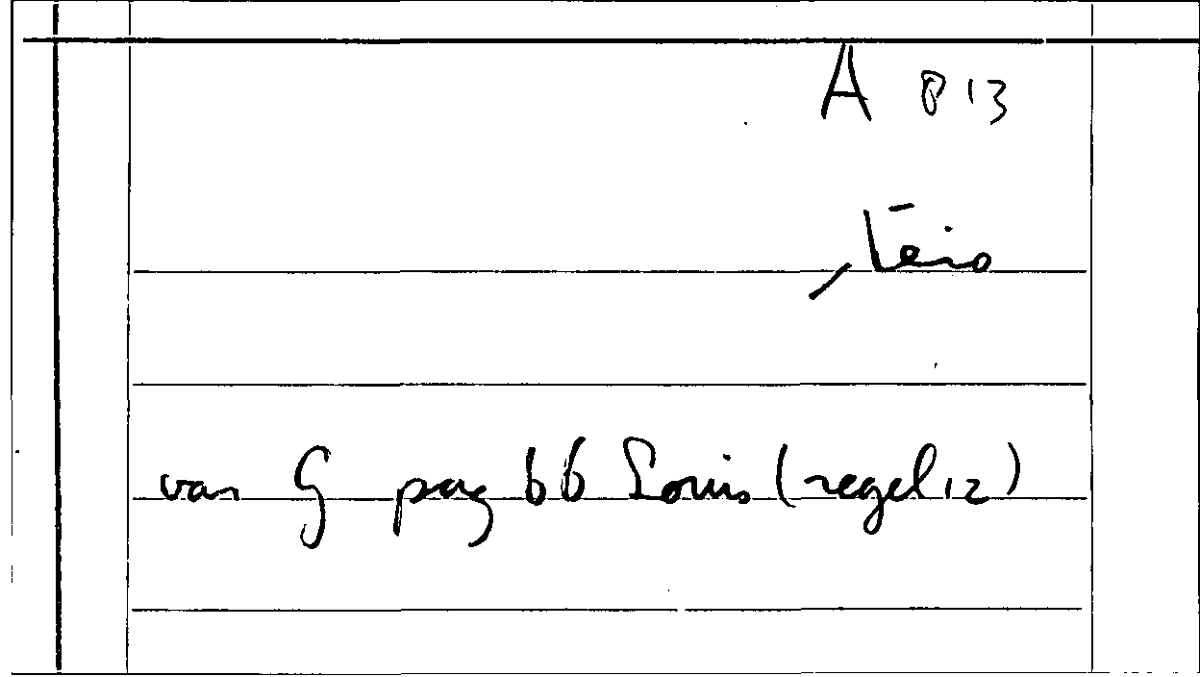 A 813
van G pag 66 Louis (regel 12)